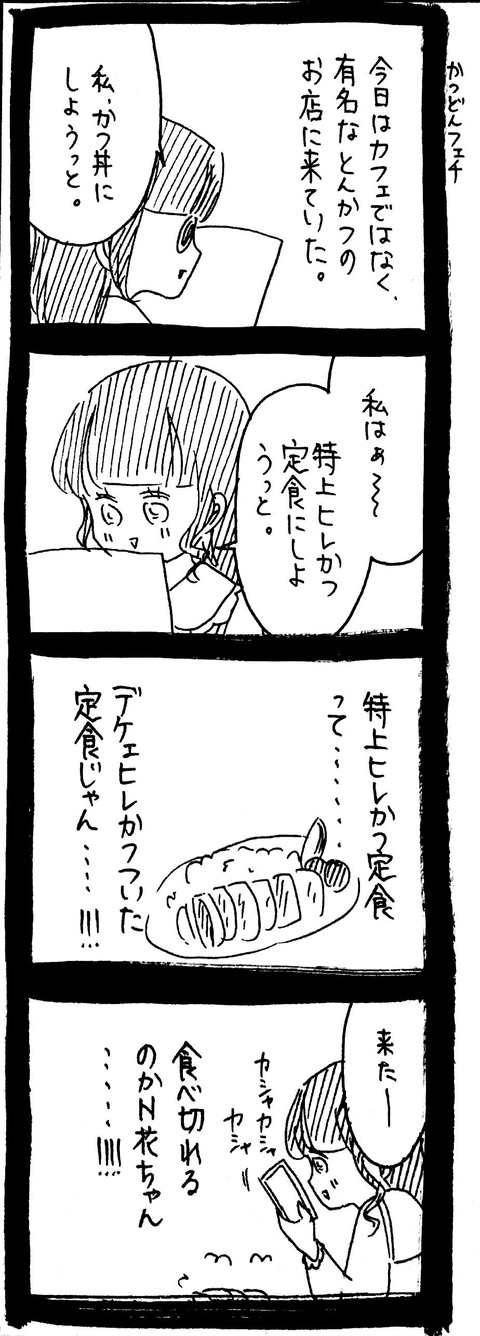 かつどんフェチ
今日はカフェではなく、
有名なとんかつの
お店に来ていた。
私、かつ丼に
しようっと。
私はぁ〜〜
特上ヒレかつ
定食にしよ
うっと。
特上ヒレかつ定食
って・・・・・・
デケェヒレかつついた
定食じゃん・・・・!!!
来たー
カシャカシャ
カシャ
食べ切れる
のかN花ちゃん
・・・・・!!!!